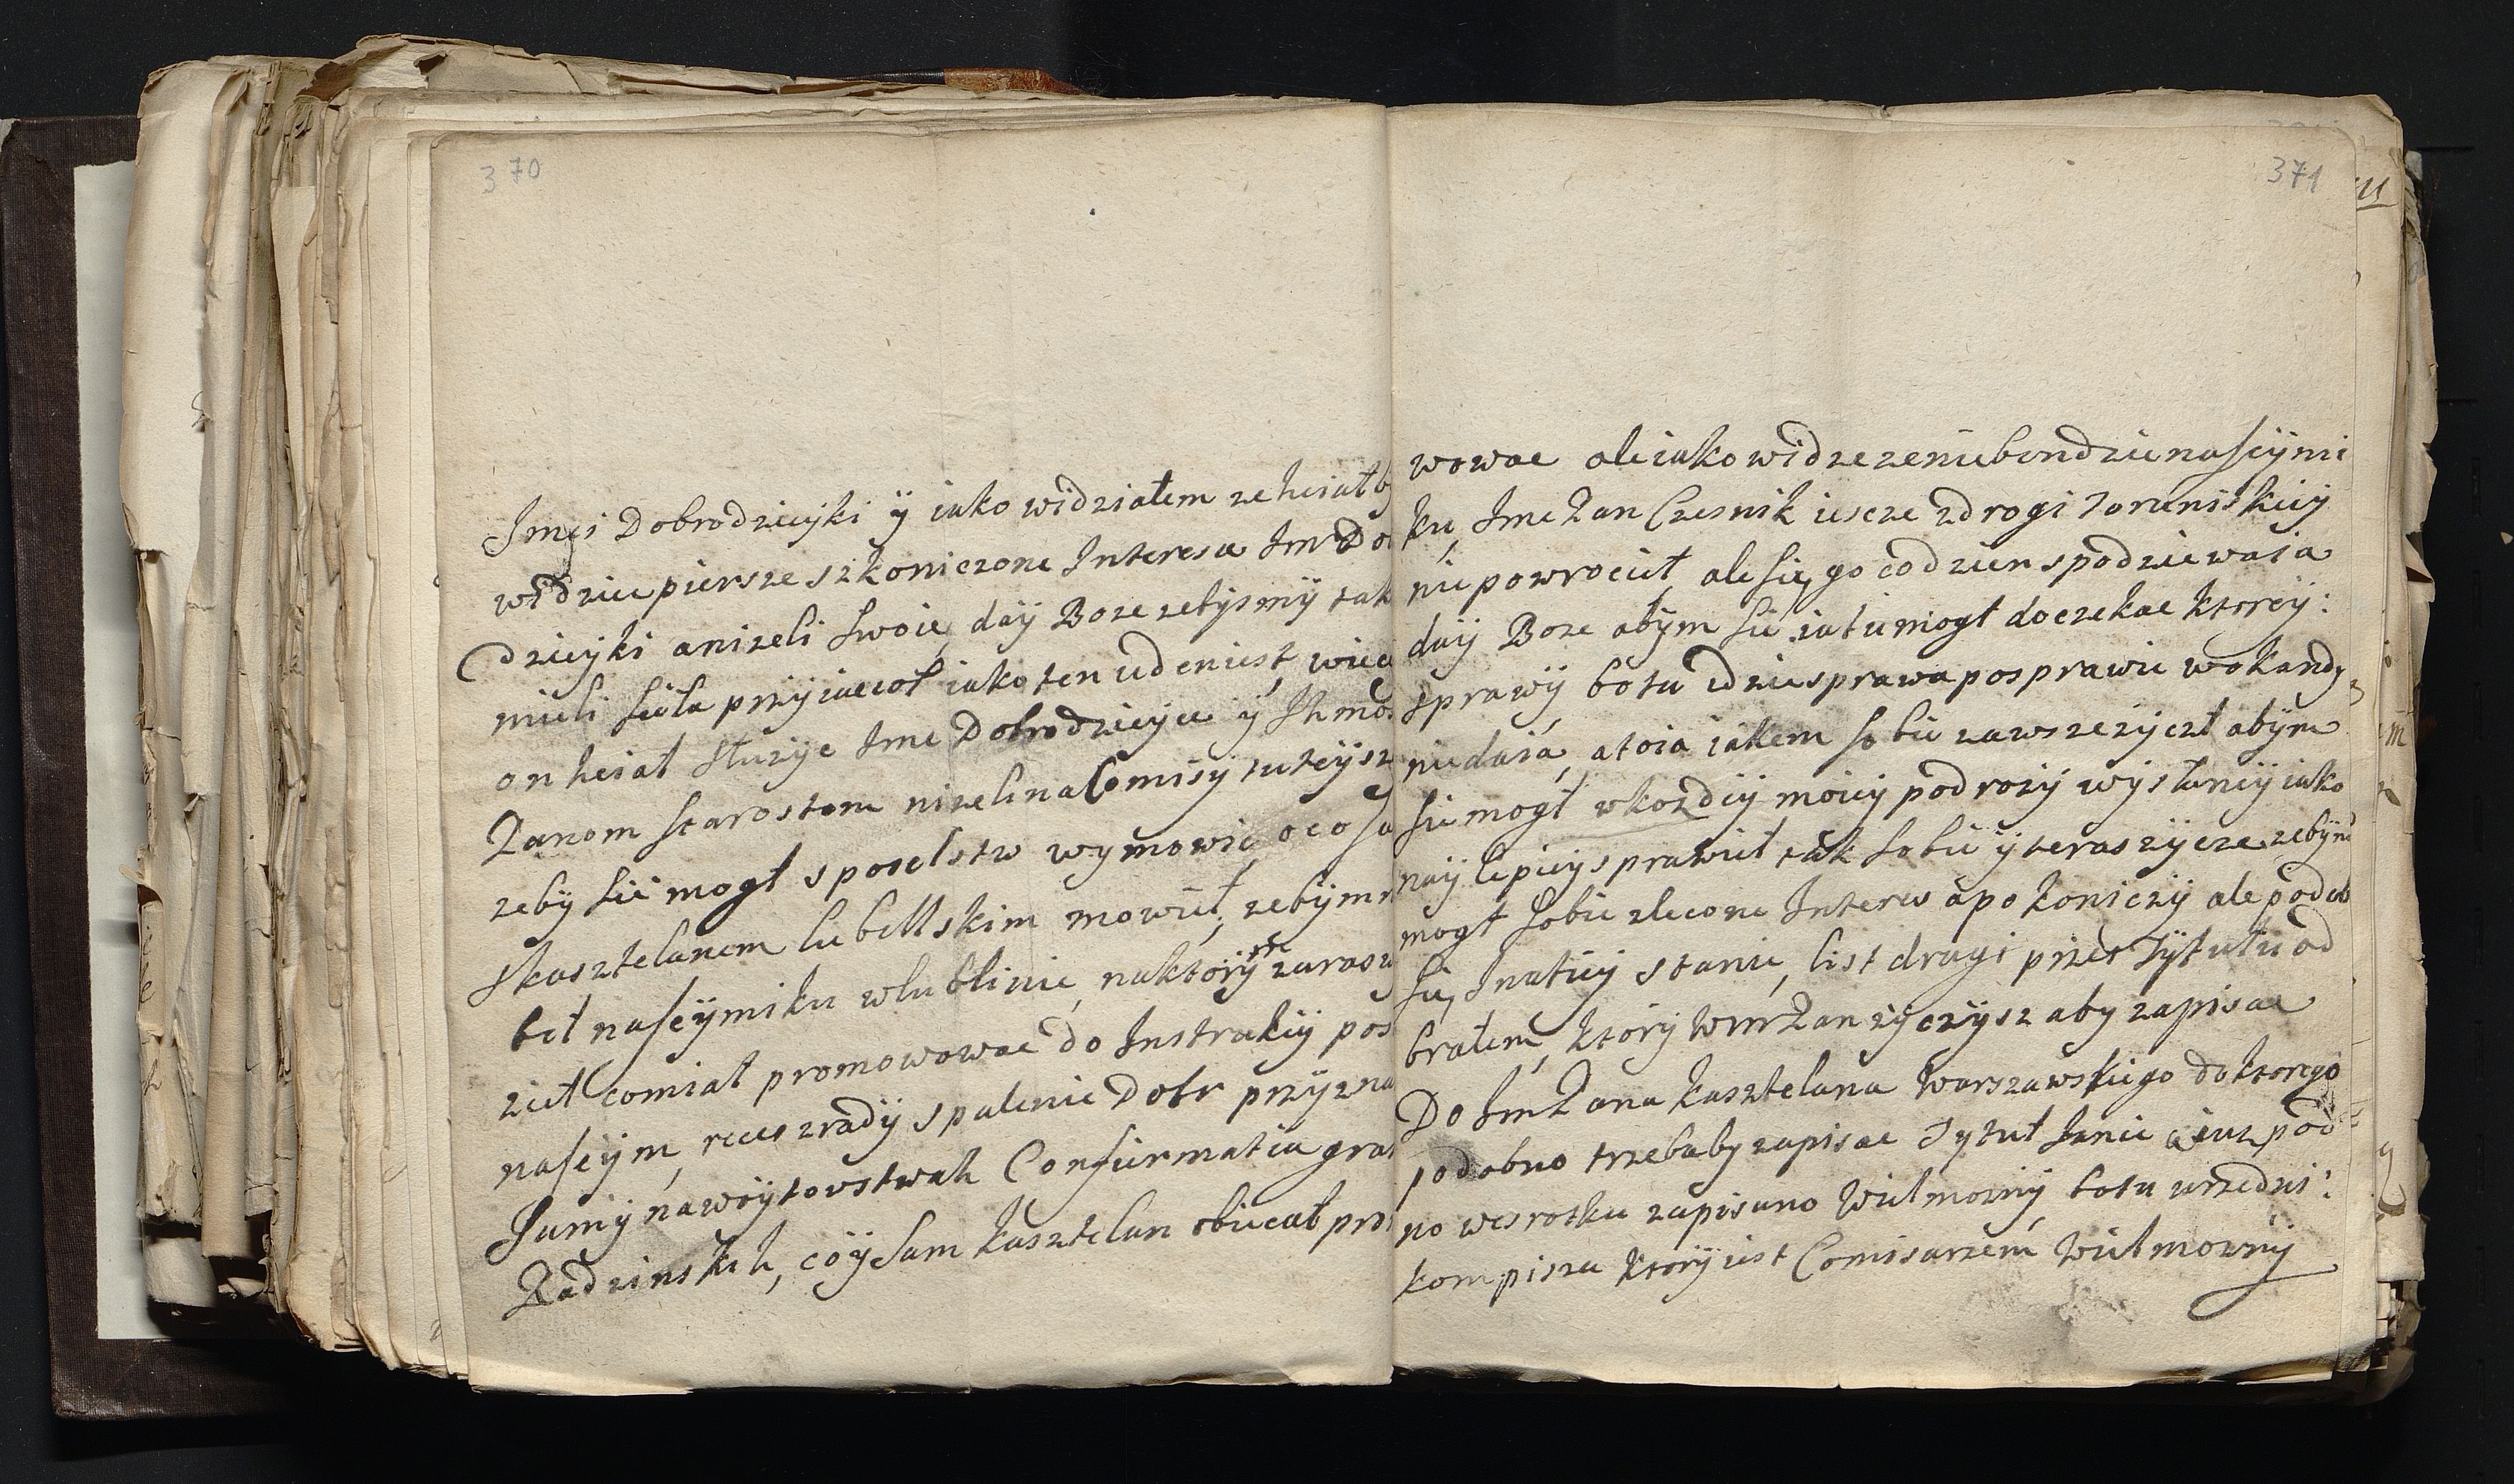 370
Jmci Dobrodzieyki ÿ iako widziałem ze hciał
widziec piersze szkoniczone Interesa Jm Do
dzieyki anizeli swoie, daÿ Boze zebysmÿ tak
mieli siela przÿiacioł iako ten ieden iest, wiec
on hciał służÿc Jmc Dobrodzieyce ÿ Ihmo
Panom starostom nizeli na Comisÿ tuteÿsz
zebÿ sie mogł s poselstw wymowic oco sa
skasztelanem lubellskim mowieł, zebÿm
beł naseÿmiku wlublinie, naktorÿm zaras
zieł comiał promowowac do Instrukcÿ pos
naseÿm, reces zradÿ spalenie Dobr przÿzna
Sumÿ nawoÿtovstwah Confiermatia gra
Radzinskih, coÿ sam kasztelan obiecał pro
371
wowac ale iako widze ze nie bendzie naseÿmi
ku, Jmc Pan Czesnik iescze zdrogi Toruniskieÿ
niepowrocieł, ale sie, go codzien spodziewaia
daÿ Boze abÿm sie iatu mogł doczekac ktoreÿ:
sprawÿ botu idzie sprawa posprawie wokandÿ
niedaia, atoia iakem sobie zawsze zÿczł abÿm
sie mogł wkozdeÿ moieÿ podrozÿ wÿsłaneÿ iako
naÿlepieÿ sprawieł tak sobie ÿ teras zÿcze zebÿm
mogł sobie zlecone Interesa pokoniczÿ ale podob
sie, Inatieÿ stanie, list drugi przes Tÿtułu od
brałem, ktorÿ Wm Pan zÿczÿsz aby zapisac
Do Jm Pana kasztelana Warszawskiego do ktorego
podobno trzebabÿ zapisac Tytuł Inie a iusz pod
no wesrotku zapisano Wielmoznÿ botu urzedni:
kom piszu ktorÿ iest Comisarzem Wielmoznÿ